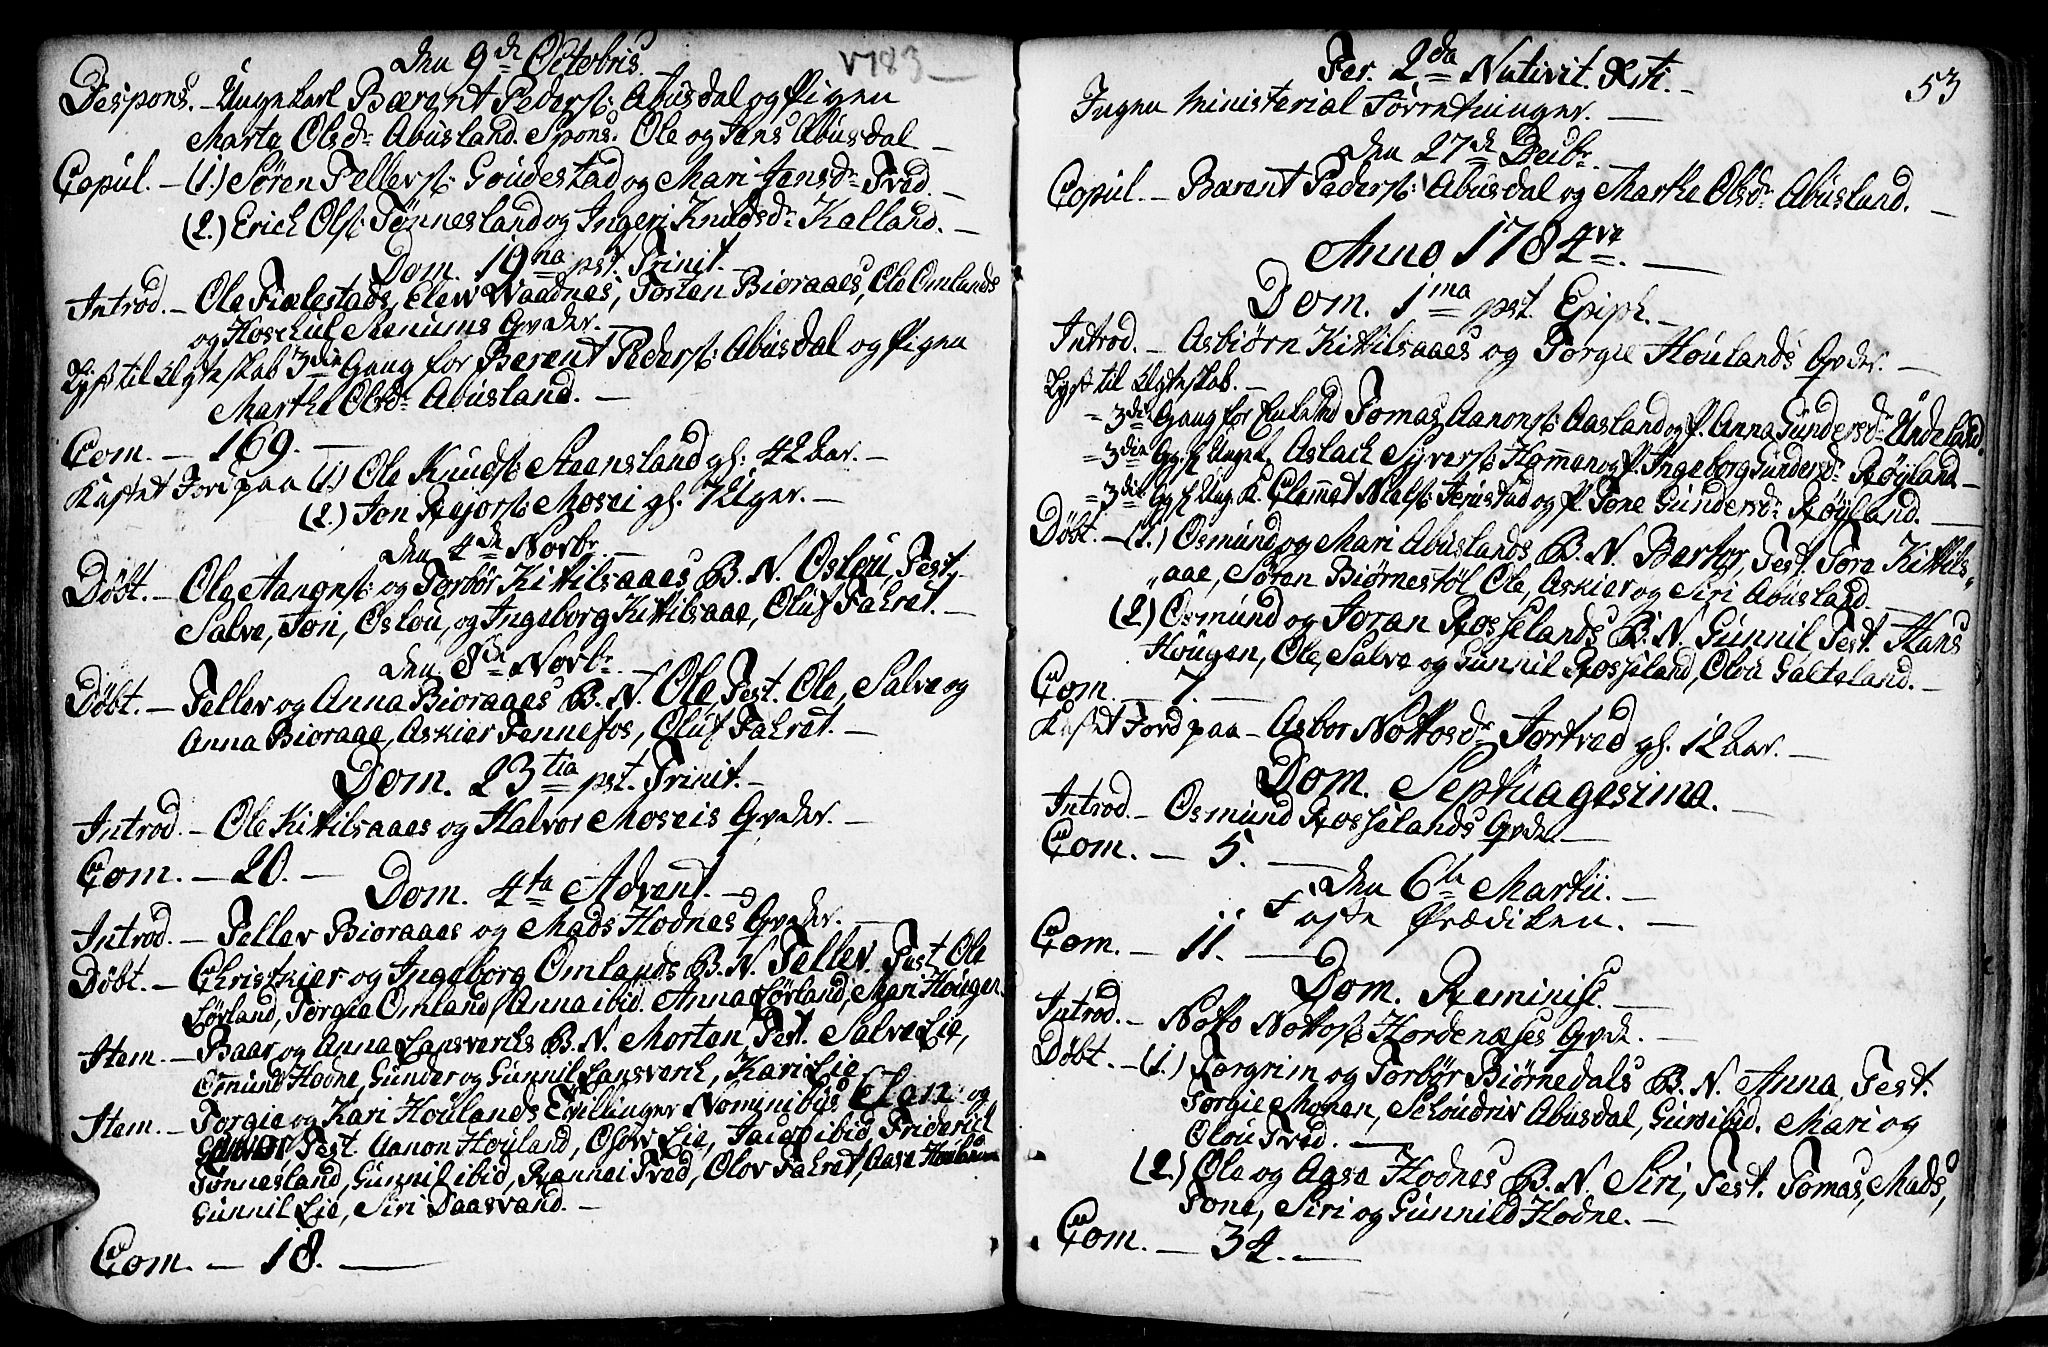 Den 9de Octobris.
1783
Despons. - Ungekarl Bærent Peders: Abusdal og Pigen
Marte Olsdr Abusland. Spons. Ole og Jens Abusdal -
Copul. - (1.) Søren Tellevs: Goudestad og Mari Jensdr Tved. -
(2.) Erich Ols: Tønnesland og Ingeri Knudsdr Kalland. -
Dom. 19na pst. Trinit. -
Introd. - Ole Fielestads, Elew Waadnes, Tosten Bioraaes, Ole Omlands
og Hoschul Meniums Qvder. -
Lyst til Egteskab 3die Gang for Berent Peders: Abusdal og Pigen
Marthe Olsdr Abusland. -
Com. - 169. -
Kastet Jord paa (1.) Ole Knuds: Staansland gl. 42 Aar. -
(2.) Jon Rejors: Mosei gl. 7 Uger. -
Den 4de Novbr. -
Døbt. - Ole Aanons: og Torbør Kittilsaaes B. N. Oslou, Test.
Salve, Jon, Oslou, og Ingeborg Kittilsaae, Oluf Fahret. -
Den 8de Novbr. -
Døbt. - Tellev og Anna Bioraaes B. N. Ole, Test. Ole, Salve og
Anna Bioraae, Askier Fennefos, Oluf Fahret. -
Dom. 23tia pst. Trinit. -
Introd. - Ole Kittilsaaes og Halvor Moseis Qvder. -
Com. - 20. -
Dom. 4ta Advent. -
Introd. - Tellev Bioraaes og Mads Hodnes Qvder. -
Døbt. - Christkier og Ingeborg Omlands B. N. Tellev. Test Ole
Lørland, Torgie Omland, Anna ibid. Anna Lørland, Mari Hougen.
Item. - Baar og Anna Lansverks B. N. Morten, Test. Salve Lie,
Osmund Hodne, Gunder og Gunnil Lansverk, Kari Lie
Item. - Torgie og Kari Houlands Tvillinger Nominibus Elen og
Test. Aanon Houland, Osow Lie, Jacop ibid, Friderich
Tønnesland, Gunnil ibid, Rannei Tved, Olov Fahret, Aase Houland
Gunnil Lie, Siri Daasvand. -
Com. - 18. -
Fer. 2da Nativit. Xsti. -
53
Ingen Ministerial Forretninger. -
Den 27de Decbr. -
Copul. - Bærent Peders: Abusdal og Marthe Olsdr Abusland. -
Anno 1784ve. -
Dom. 1ma pst. Epiph. -
Introd. - Asbiørn Kittilsaaes og Torgie Houlands Qvder. -
Lyst til Egteskab. -
= 3die Gang for Enkemd Tomas Aanons: Aasland og P. Anna Gundersdr Udeland.
= 3die Gg f. Unge K. Aslach Syvers: Homme og P. Ingeborg Gundersdr Røyland -
= 3die Gg f. Ung. K. Clemmet Niels: Jerustad og P. Tone Gundersdr Røyland. -
Døbt. - (1.) Osmund og Mari Abuslands B. N. Berthor, Test. Tore Kittils„
„aae, Søren Biørnestøl Ole, Askier og Siri Abusland. -
(2) Osmund og Joran Rosselands B. N. Gunnil, Test. Hans
Hougen, Ole, Salve og Gunnil Rosseland, Olou Galteland. -
Com. - 7. -
Kastet Jord paa - Asbor Nottosdr Tortved gl. 12 Aar. -
Dom. Septuagesima. -
Introd. - Osmund Rosselands Qvde. -
Com. - 5. -
Den 6te Martii. -
Faste Prædiken. -
Com. - 11. -
Dom. Reminisc. -
Introd. - Notto Nottos: Hordenæses Qvde. -
Døbt. - (1.) Torgrim og Torbør Biørnedals B. N. Anna, Test.
Torgie Monen, Abusdal, Guro ibid. Mari og
Olou Tved. -
(2.) Ole og Aase Hodnes B. N. Siri, Test. Tomas, Mads,
Tone, Siri og Gunnild Hodne. -
Com. - 34. -